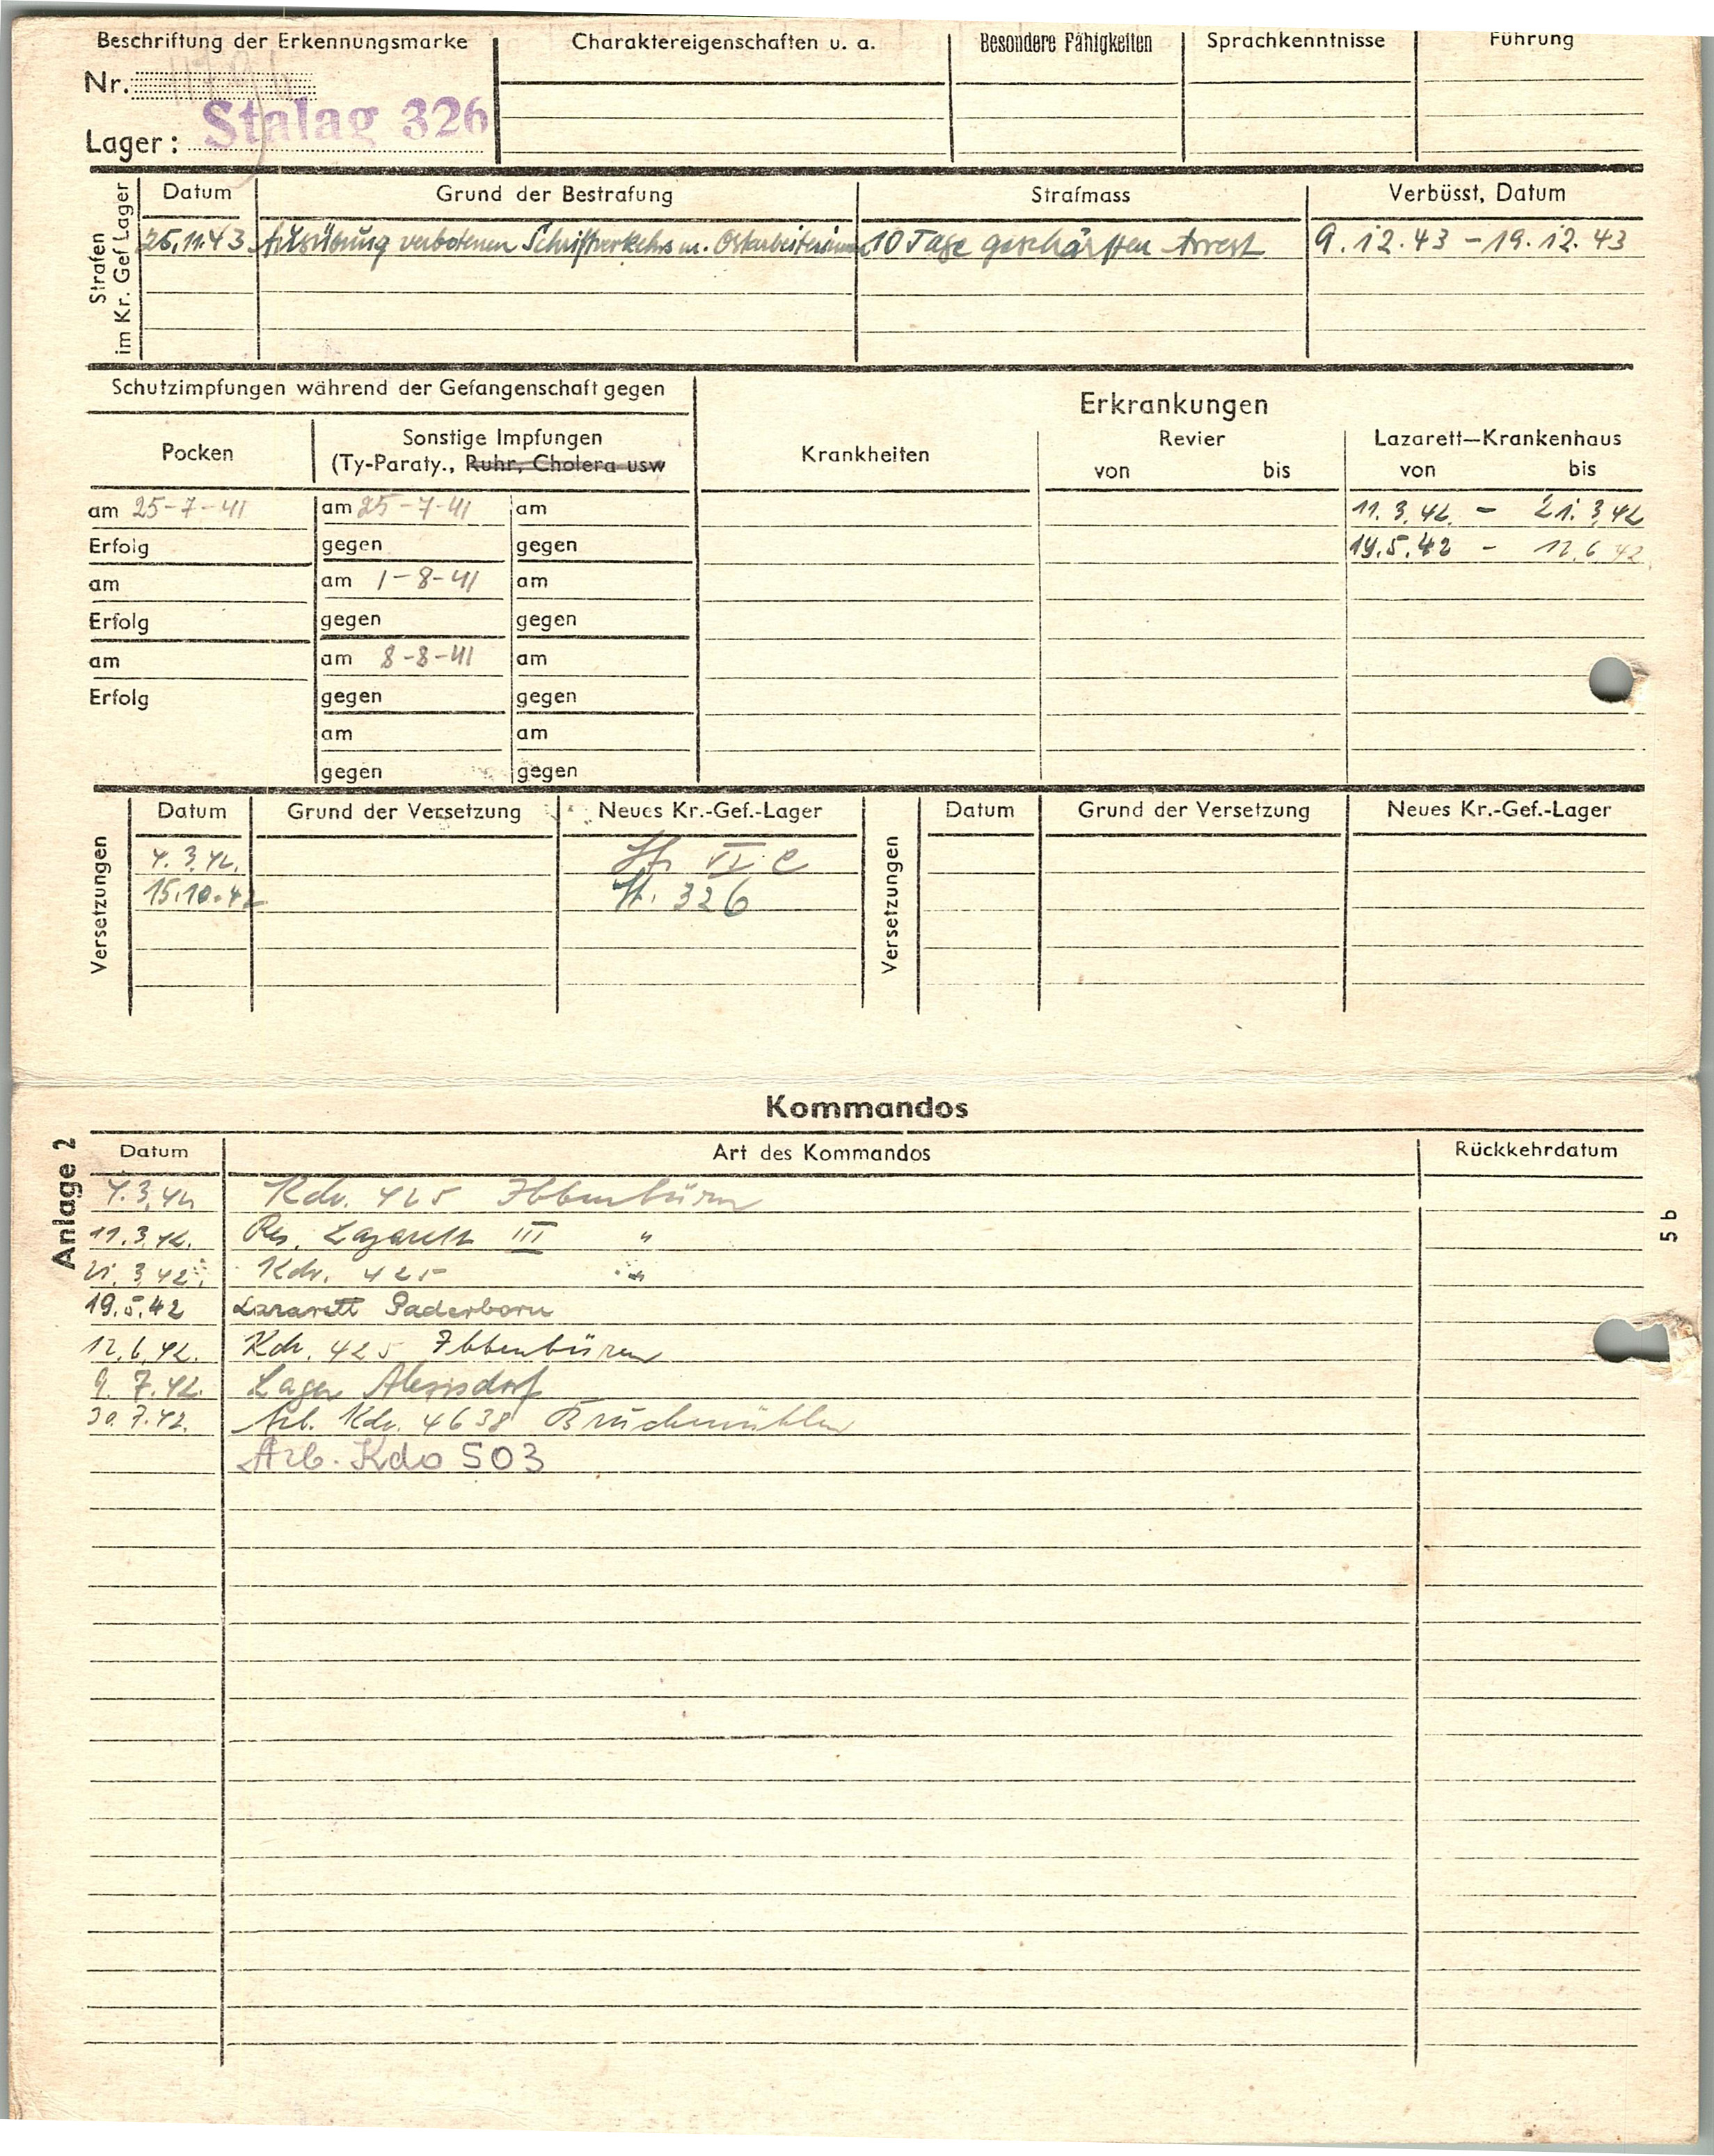 Beschriftung der Erkennungsmarke
Nr.
Lager: Stalag 326
Charaktereigenschaften u. a.
Besondere Fähigkeiten
Sprachkenntnisse
Führung
Strafen
im Kr. Gef Lager
Datum Grund der Bestrafung Strafmass Verbüsst, Datum
25.11.43. Ausübung verbotenen Schriftverkehrs m. Ostarbeiterinnen 10 Tage geschärften Arrest 9.12.43 - 19.12.43
Schutzimpfungen während der Gefangenschaft gegen
Pocken
Sonstige Impfungen
(Ty-Paraty., Ruhr, Cholera usw
Erkrankungen
Krankheiten
Revier
von bis
Lazarett—Krankenhaus
von bis
am 25-7-41 am 25-7-41 am
11.3.42. - 21.3.42
Erfolg gegen gegen
19.5.42 - 12.6.42
am am 1-8-41 am
Erfolg gegen gegen
am am 8-8-41 am
Erfolg gegen gegen
am am
gegen gegen
Versetzungen
Datum Grund der Versetzung Neues Kr.-Gef.-Lager
4.3.42. VI C
15.10.42 St. 326
Versetzungen
Datum Grund der Versetzung Neues Kr.-Gef.-Lager
Kommandos
Anlage 2
5 b
Datum Art des Kommandos Rückkehrdatum
4.3.42 Kdo. 425 Ibbenbüren
11.3.42. Res. Lazarett III "
21.3.42. Kdo. 425 "
19.5.42 Lazarett Paderborn
12.6.42. Kdo. 425 Ibbenbüren
9.7.42. Lager Alexisdorf
30.7.42. Arb. Kdo. 4638 Bruchmühlen
Arb. Kdo 503